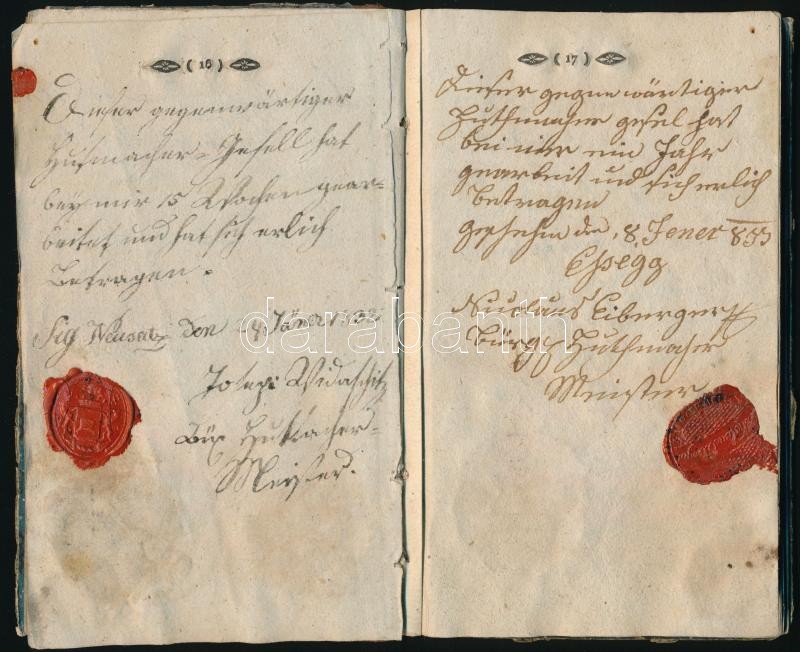 ( 16 )
Dieser gegenwärtiger
Hutmacher-Gesell hat
bey mir 15 Wochen gear-
beitet und hat sich erlich
Betragen.
Sig Neusatz den Jäner
Widaschitz
Hutmacher-
Meister.
( 17 )
Dieser gegenwärtiger
Huthmacher gesel hat
bei mir ein Jahr
gearbeit und sich erlich
Betragen
geschehn den 8 Jener 833
Essegg
Eiberger
Bürg Huthmacher
Meister
darabanth